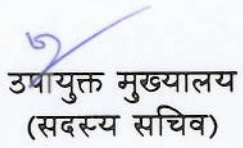 उपायुक्त मुख्यालय
(सदस्य सचिव)